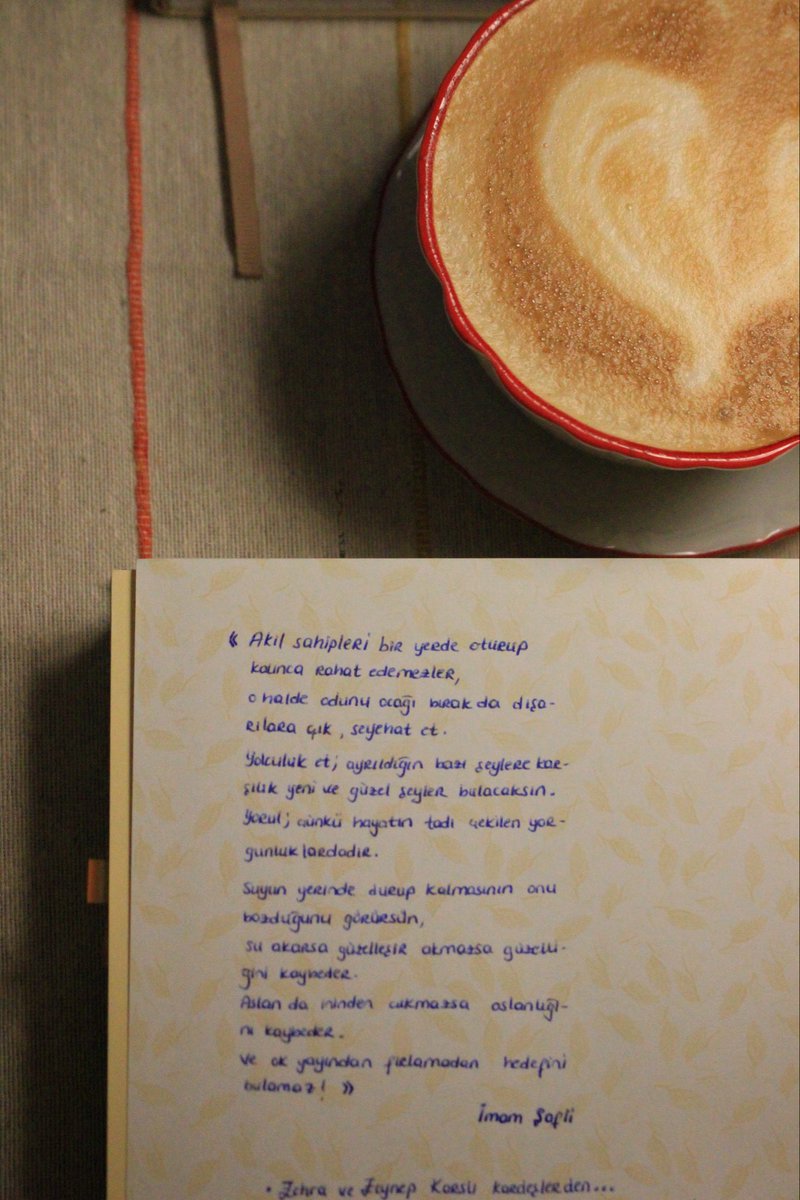 « Akıl sahipleri bir yerde oturup
kalınca rahat edemezler,
o halde odunu ocağı bırak da dışa-
rılara çık, seyehat et.
Yolculuk et; ayrıldığın bazı şeylere kar-
şılık yeni ve güzel şeyler bulacaksın.
Yorul; çünkü hayatın tadı çekilen yor-
gunluklardadır.
Suyun yerinde durup kalmasının onu
bozduğunu görürsün,
su akarsa güzelleşir akmazsa güzelli-
ğini kaybeder.
Aslan da ininden çıkmazsa aslanlığı-
nı kaybeder.
ve ok yayından fırlamadan hedefini
bulamaz! »
İmam Şafii
• Zehra ve Zeynep Karslı kardeşlerden...